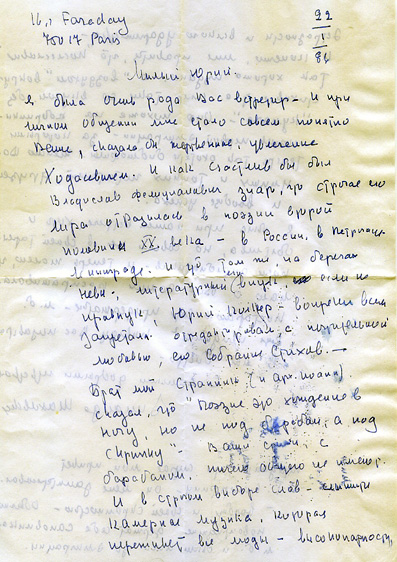 16, r Faraday
75017 Paris
22
I
84
Милый Юрий.
Я была очень рада Вас встретить и при
личном общении мне стало совсем понятно
Ваше, сказала бы жертвенное, увлечение
Ходасевичем. И как счастлив бы был
Владислав Фелицианович зная, что строгая его
лира отразилась в поэзии второй
половины XX века – в России, в
и что там же, на берегах
Невы, литературный внук, если не
правнук Юрий – вопреки всем
запретам с
любовью, его собрание стихов. –
Брат мой Странник (и арх. Иоанн)
сказал, что "Поэзия это хождение в
ногу, но не под барабан, а под
скрипку" – Ваши стихи с
барабаном, ничего общего не имеют.
И в строгом выборе слов –
камерная музыка, которая
переживет все моды – высокопарность,